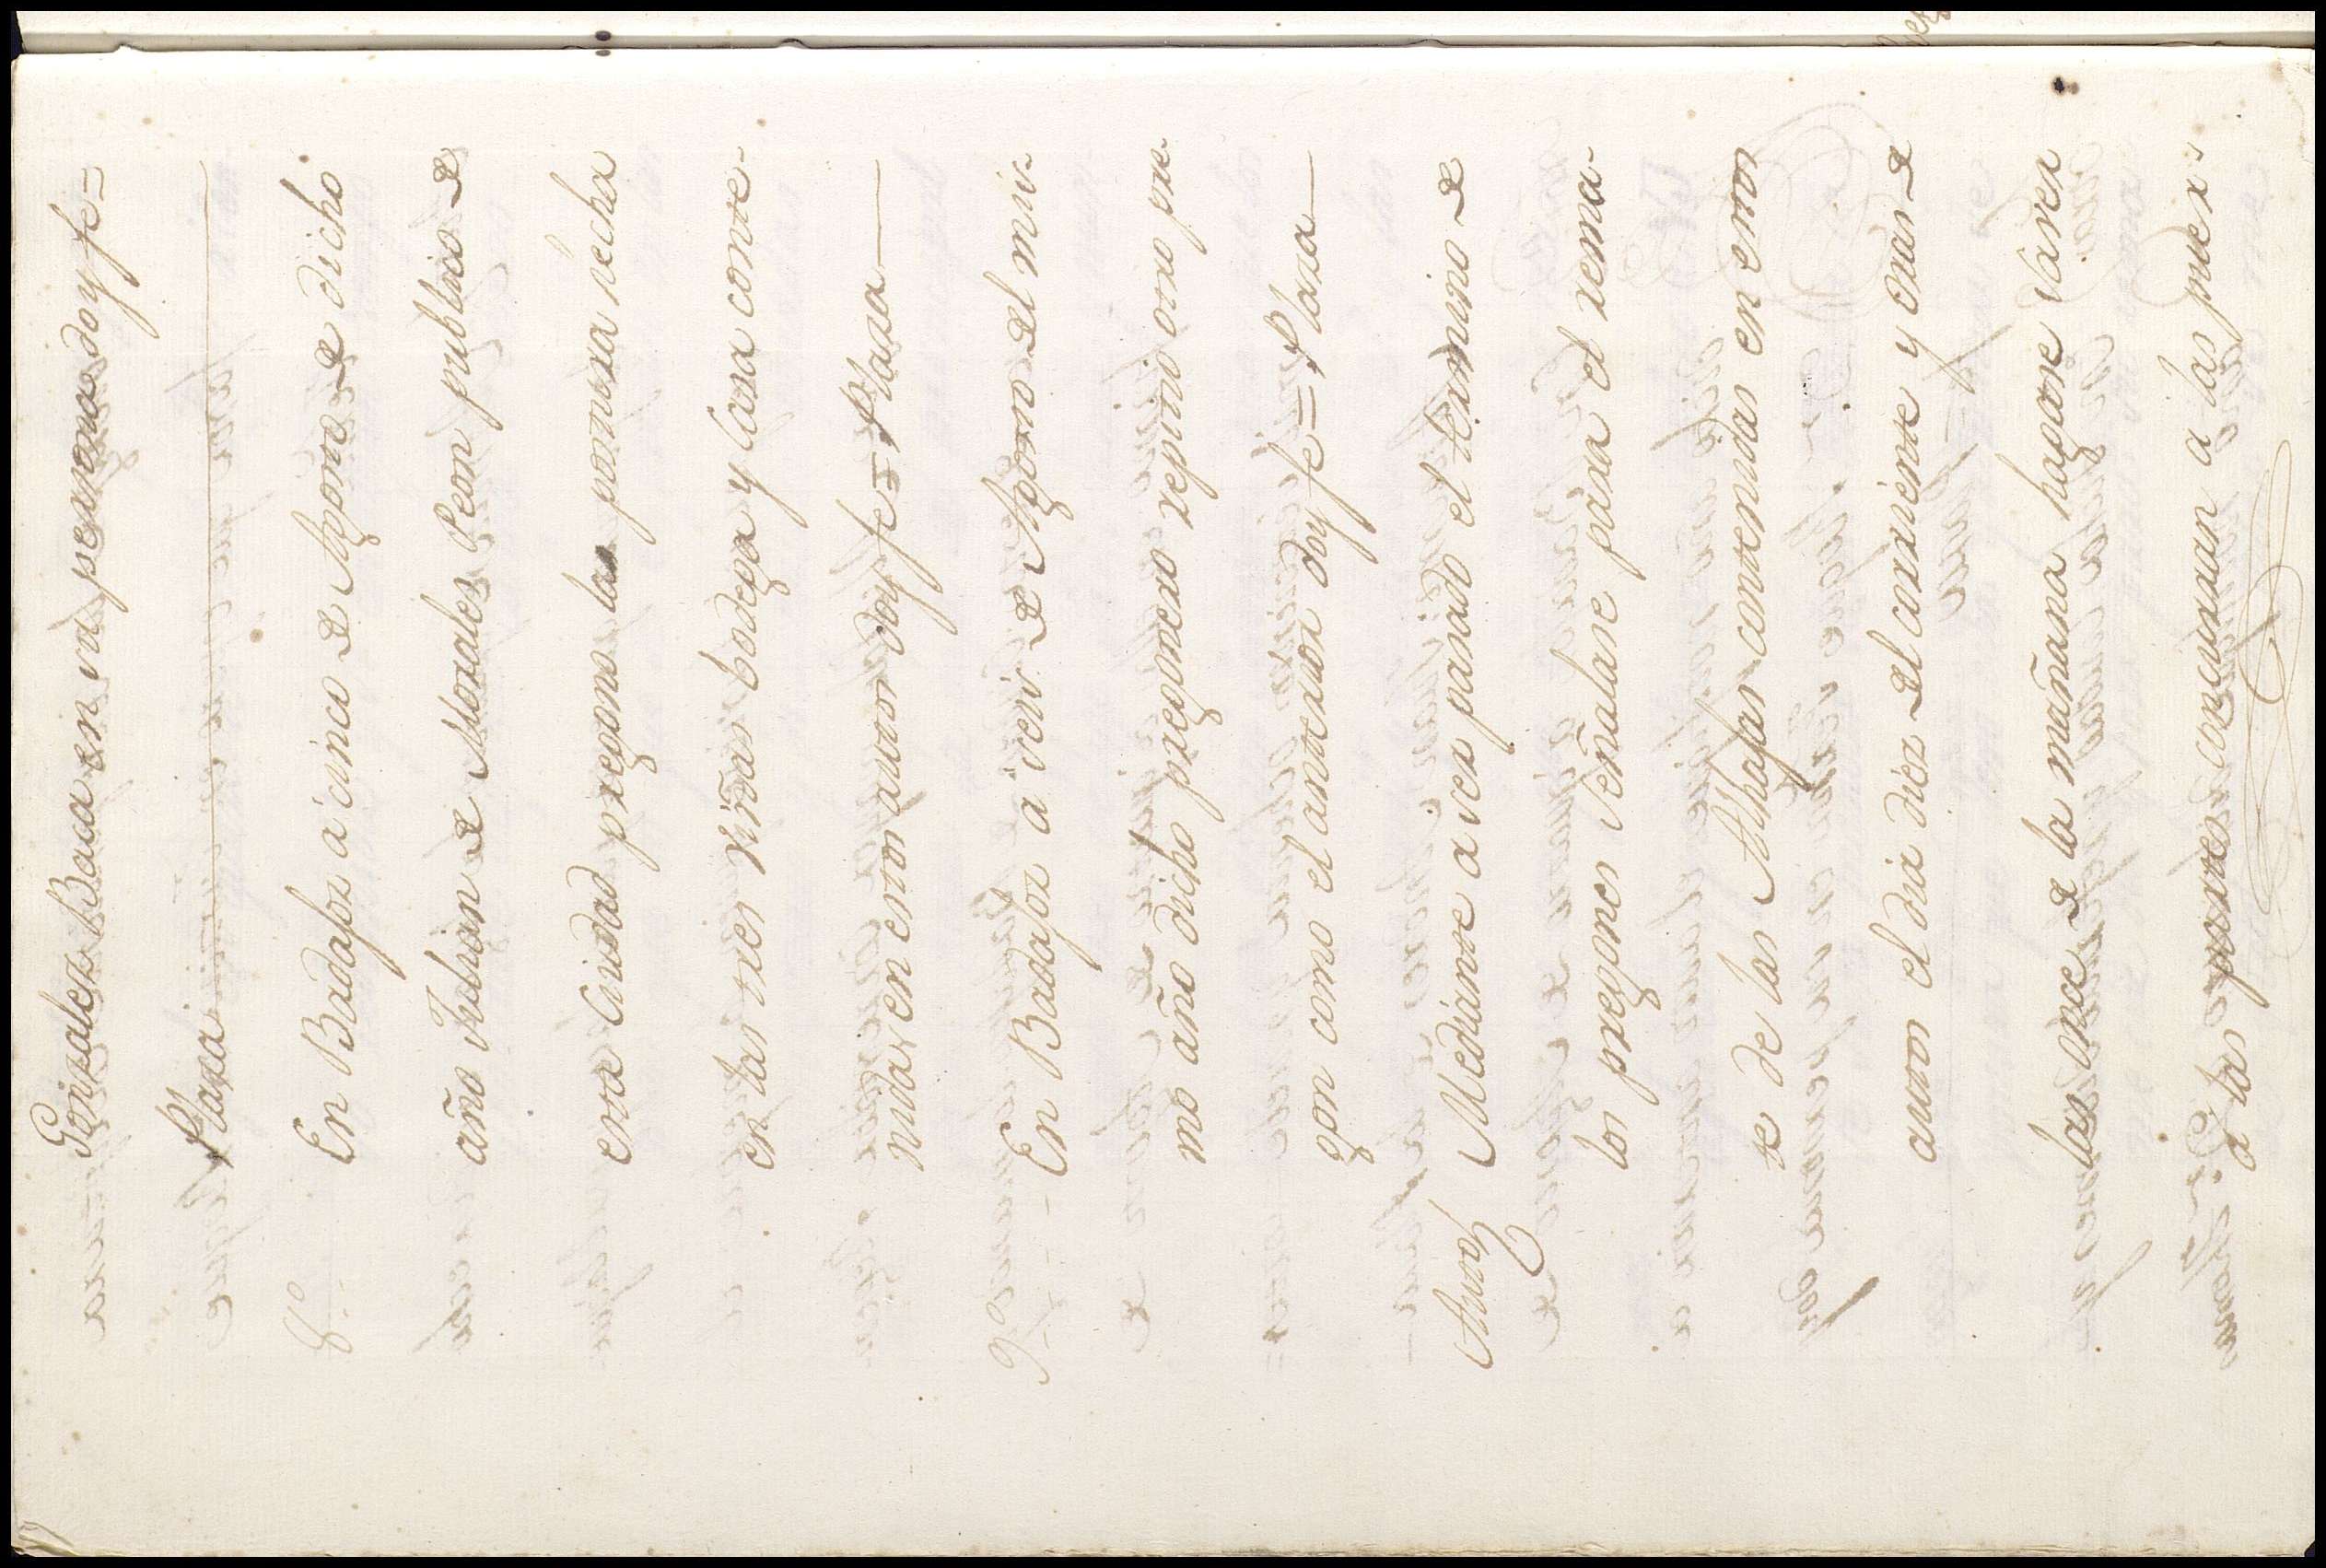 Gonzalez Baca en su persona doy fe=
Plaza
8º En Badajoz a cinco de Agosto de dicho
año Julian de Morales Peon publico de
esta Ciudad pregono la postura hecha
en las tres viñas bodega y casa conte-
nidas en estos autos doy fe= Plaza
9º En Badajoz a seis de Agosto del mis-
mo año dicho pregonero repitio otro pre-
gon como el anterior doy fe= Plaza
Auto Mediante a ser pasado el termino de
los pregones señalase para el rema-
te de las Alhajas contenidas en estos
autos el dia diez del corriente y oras de
las once de la mañana hagase saver
a las partes concurran a las puer-